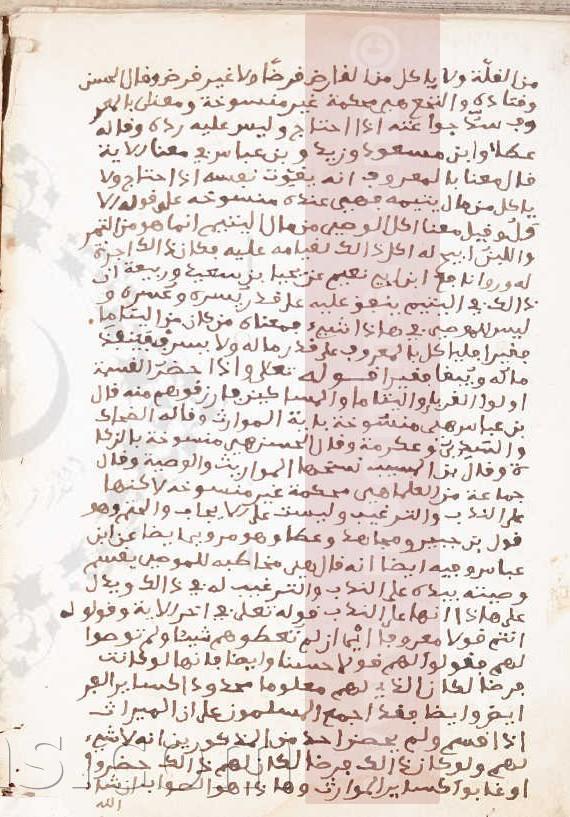 من الغلّة ولا ياكل من الفارض فرضًا ولا غير فرض وقال الحسن
وقتادة والنخعي هي محكمة غير منسوخة ومعنى بالمعروف
سدّ جوعته اذا احتاج وليس عليه رده وقاله
عطاء وابن مسعود وزيد وبن عباس في معنا الاية
قال معنا بالمعروف انه يقوت نفسه اذا احتاج ولا
ياكل من مال يتيمه فهي عنده منسوخة على قوله الا
ول وقيل معنا اكل الوصي من مال اليتيم انما هو من التمر
واللبن ابيح له اكل ذالك لقيامه عليه فكان ذالك اجرة
له وروا نافع ابن ابي نعيم عن يحيا بن سعيد وربيعة ان
ذالك في اليتيم ينفق عليه على قدر يسره وعسره و
ليس للوصي في هاذا شيء فمعناه من كان من اليتاما
فقيرا فلياكل بالمعروف على قدر ماله ولا يسرف فينفذ
ماله ويبقا فقيرا قوله تعلى واذا حضر القسمة
اولوا القربا واليتاما والمساكين فارزقوهم منه قال
بن عباس هي منسوخة باية الموارث وقاله الضحاك
والسّدي وعكرمة وقال الحسن هي منسوخة بالزكا
ة وقال بن المسيب نسخها الموارث والوصية وقال
جماعة من العلما هي محكمة غير منسوخة لاكنها
على الندب والترغيب وليست على الايجاب والحتم وهو
قول بن جبير ومجاهد وعطا وهو مروي ايضا عن ابن
عباس وفيه ايضا انه قال هي مخاطبه للموصي يقسم
وصيته بيده على الندب والترغيب له في ذالك ويدل
على هاذا انها على الندب قوله تعلى في اخر الاية وقولوا له
انتم قولا معروفا اي ان لم تعطوهم شيئا ولم توصوا
لهم فقولوا لهم قولا حسنا وايضا فانها لو كانت
فرضا لكان الذي لهم معلوما محدودا كساير الفر
ايض وايضا فقد اجمع المسلمون على ان الميراث
اذا قسم ولم يحضر احد من المذكورين انه لا شيء
لهم ولو كان ذالك فرضا لكان لهم ذالك حضروا
او غابوا كساير الموارث وهاذا هو الصواب ان شاء
الله